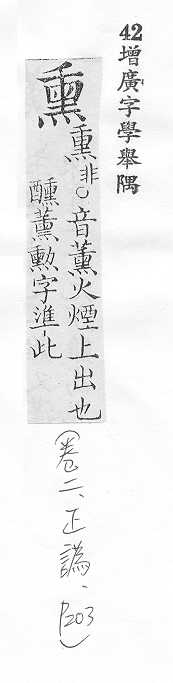 42增廣字學舉隅
熏
熏非○音薰火煙上出也
醺薰勳字準此
(卷二、正譌、P203)